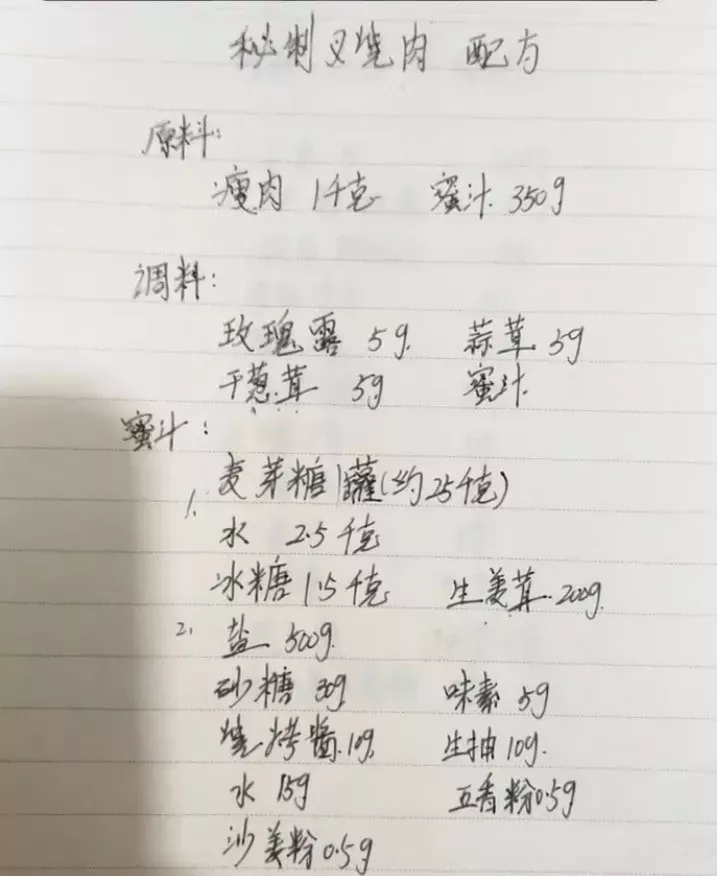 秘制叉烧肉 配方
原料：
瘦肉 1千克 蜜汁 350g
调料：
玫瑰露 5g. 蒜茸 5g
干葱茸 5g 蜜汁
蜜汁：
1. 麦芽糖1罐(约25千克)
水 2.5千克
冰糖 1.5千克 生姜茸 200g.
2. 盐 500g.
砂糖 30g 味素 5g
烧烤酱 10g. 生抽 10g.
水 15g 五香粉 0.5g
沙姜粉 0.5g